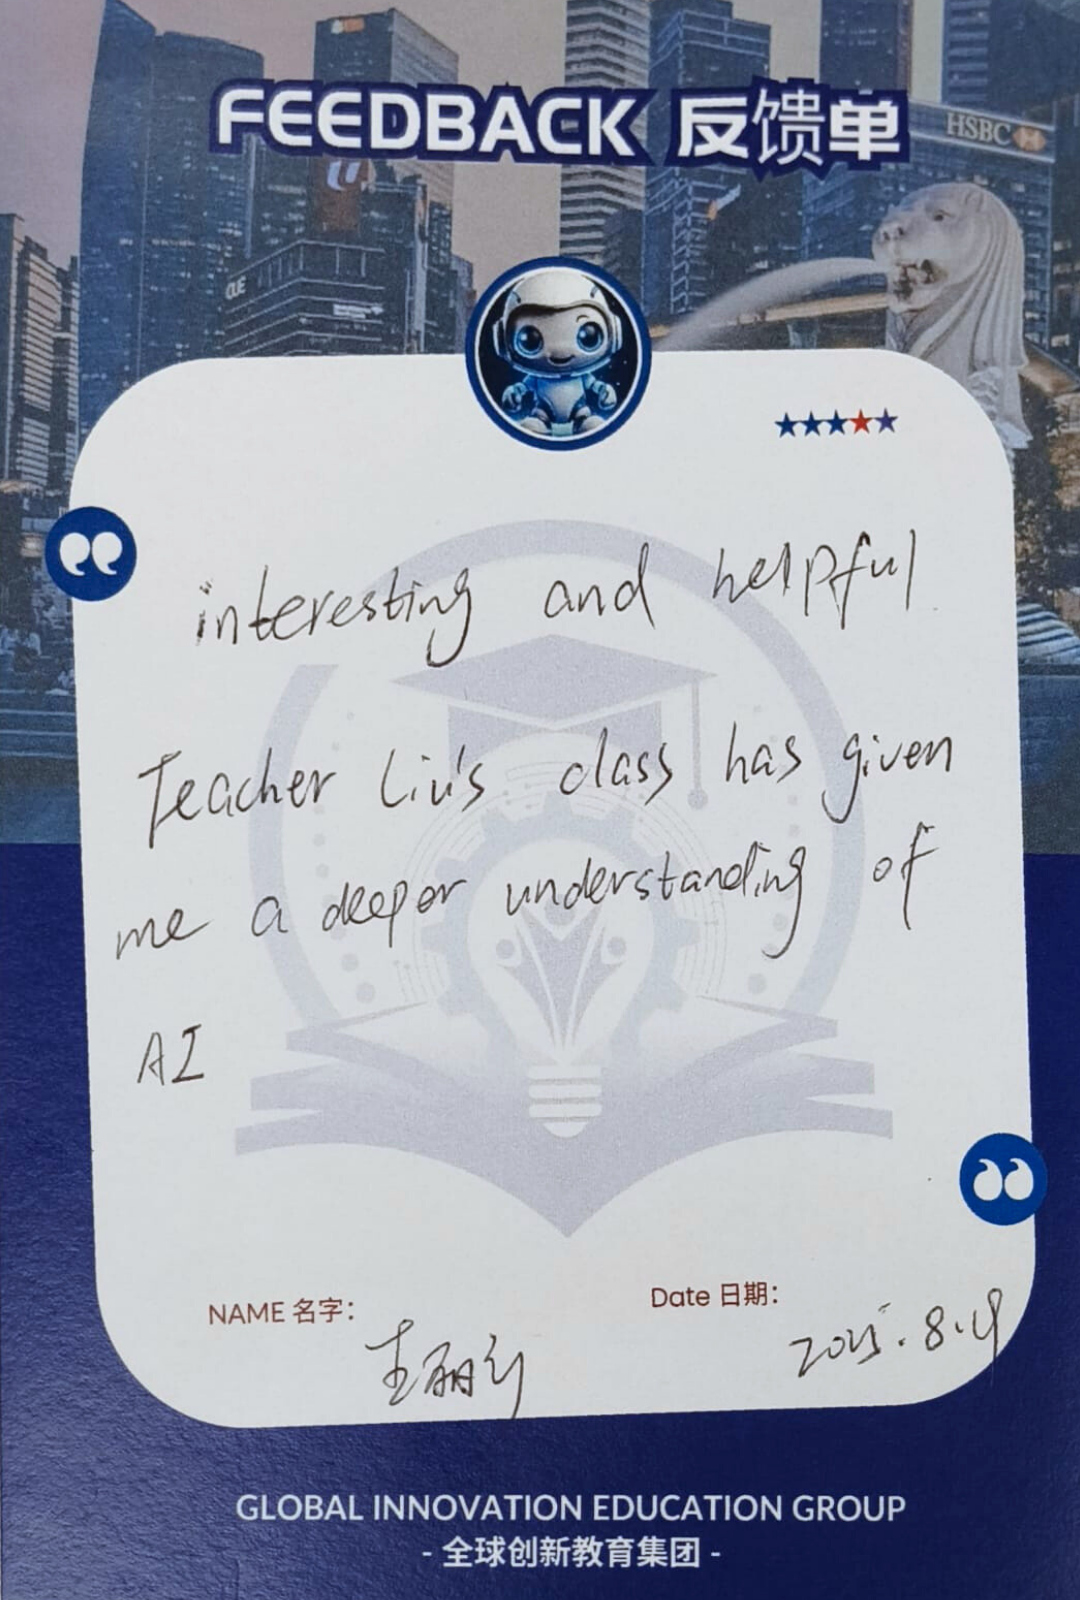 FEEDBACK 反馈单
HSBC
CUE
interesting and helpful
Teacher Liu's class has given
me a deeper understanding of
AI
NAME 名字:
Date 日期:
王丽
2025.8.19
GLOBAL INNOVATION EDUCATION GROUP
- 全球创新教育集团 -